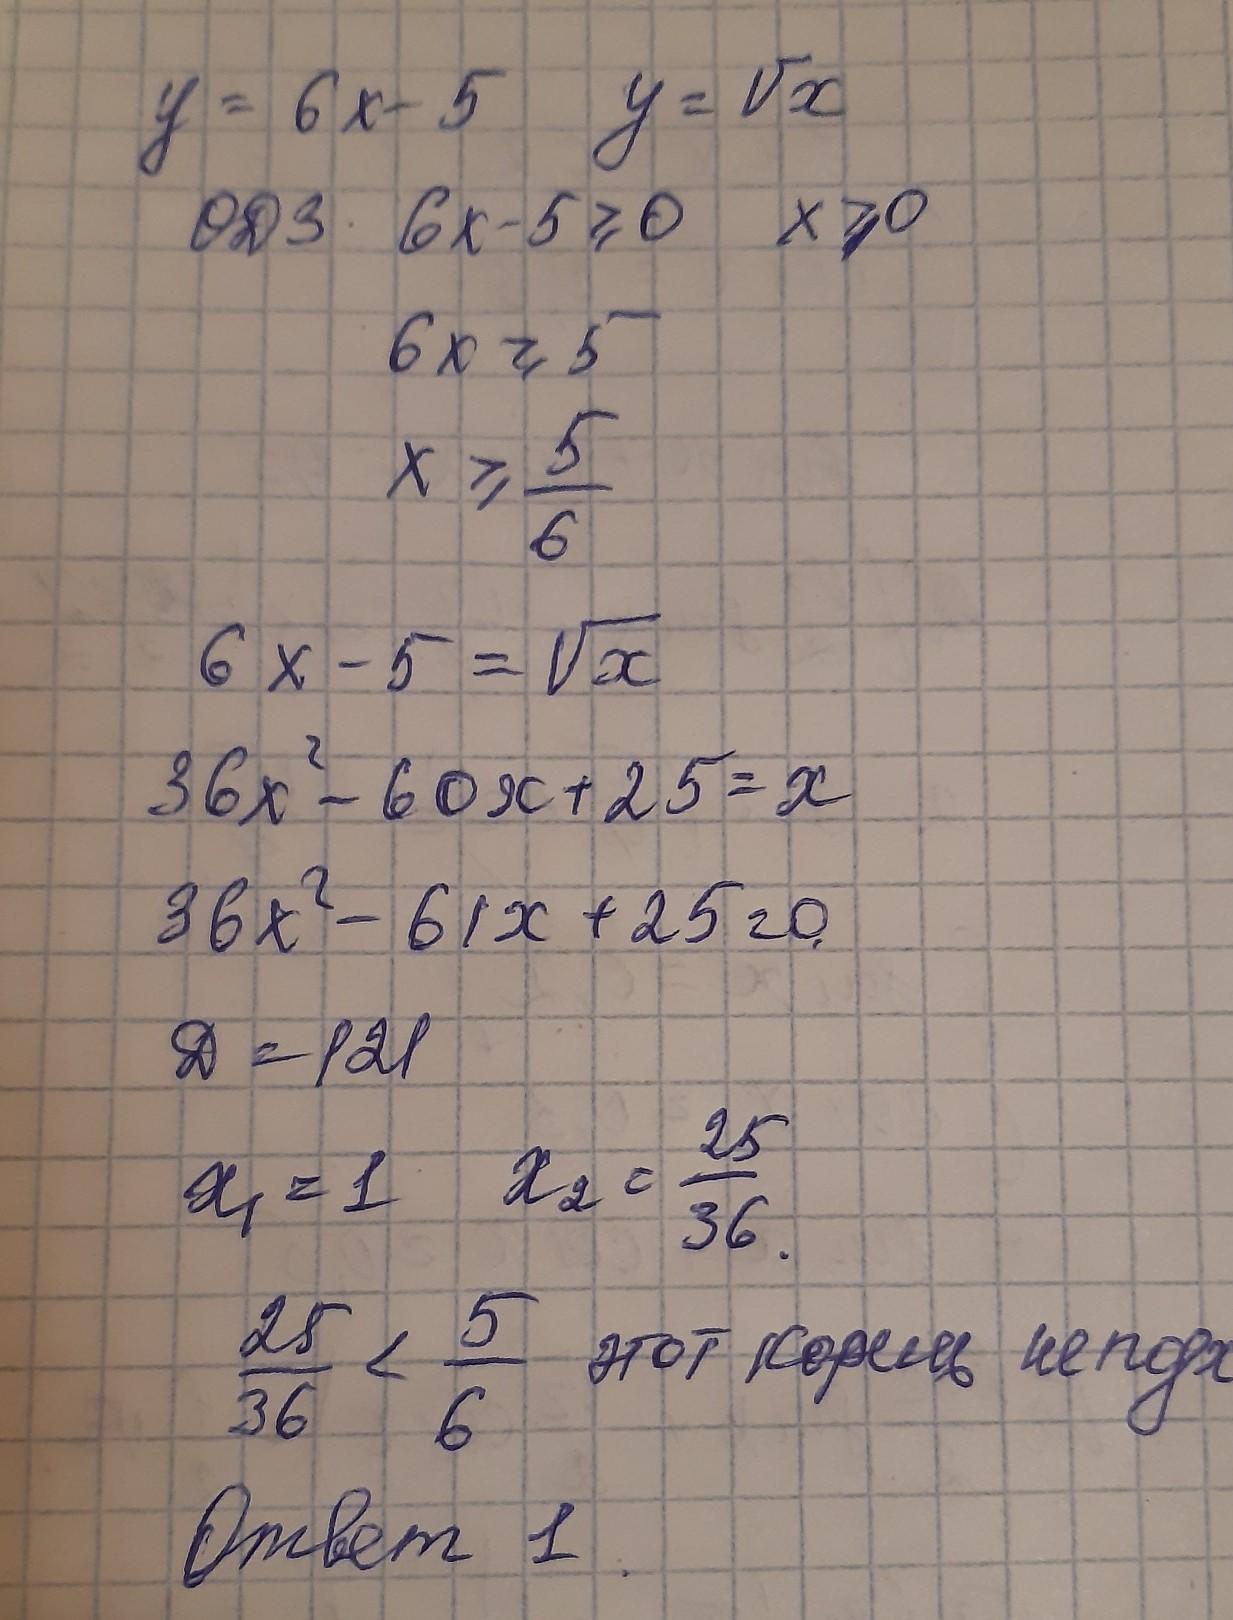 y = 6x - 5   y = √x
ОДЗ. 6x - 5 ⩾ 0   x ⩾ 0
6x ⩾ 5
x ⩾ 5/6
6x - 5 = √x
36x² - 60x + 25 = x
36x² - 61x + 25 = 0.
D = 121
x₁ = 1   x₂ = 25/36.
25/36 < 5/6 этот корень не подх
Ответ 1.